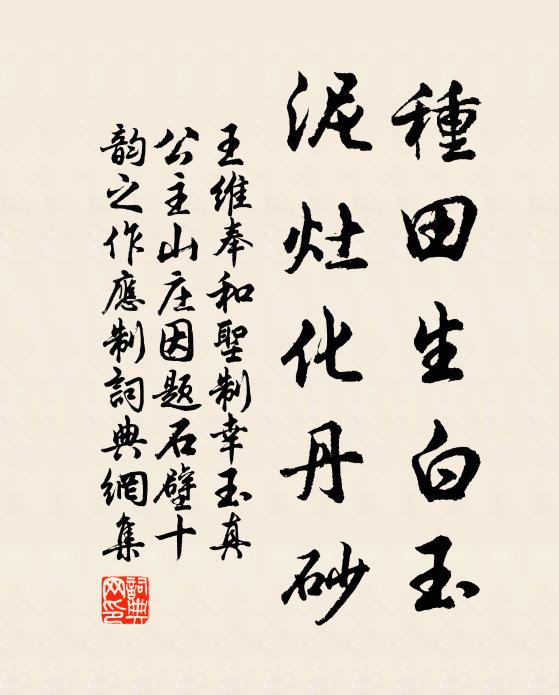 種田生白玉
泥灶化丹砂
王維奉和聖制幸玉真
公主山庄因題石壁十
韵之作應制詞典網集
詞典
网印